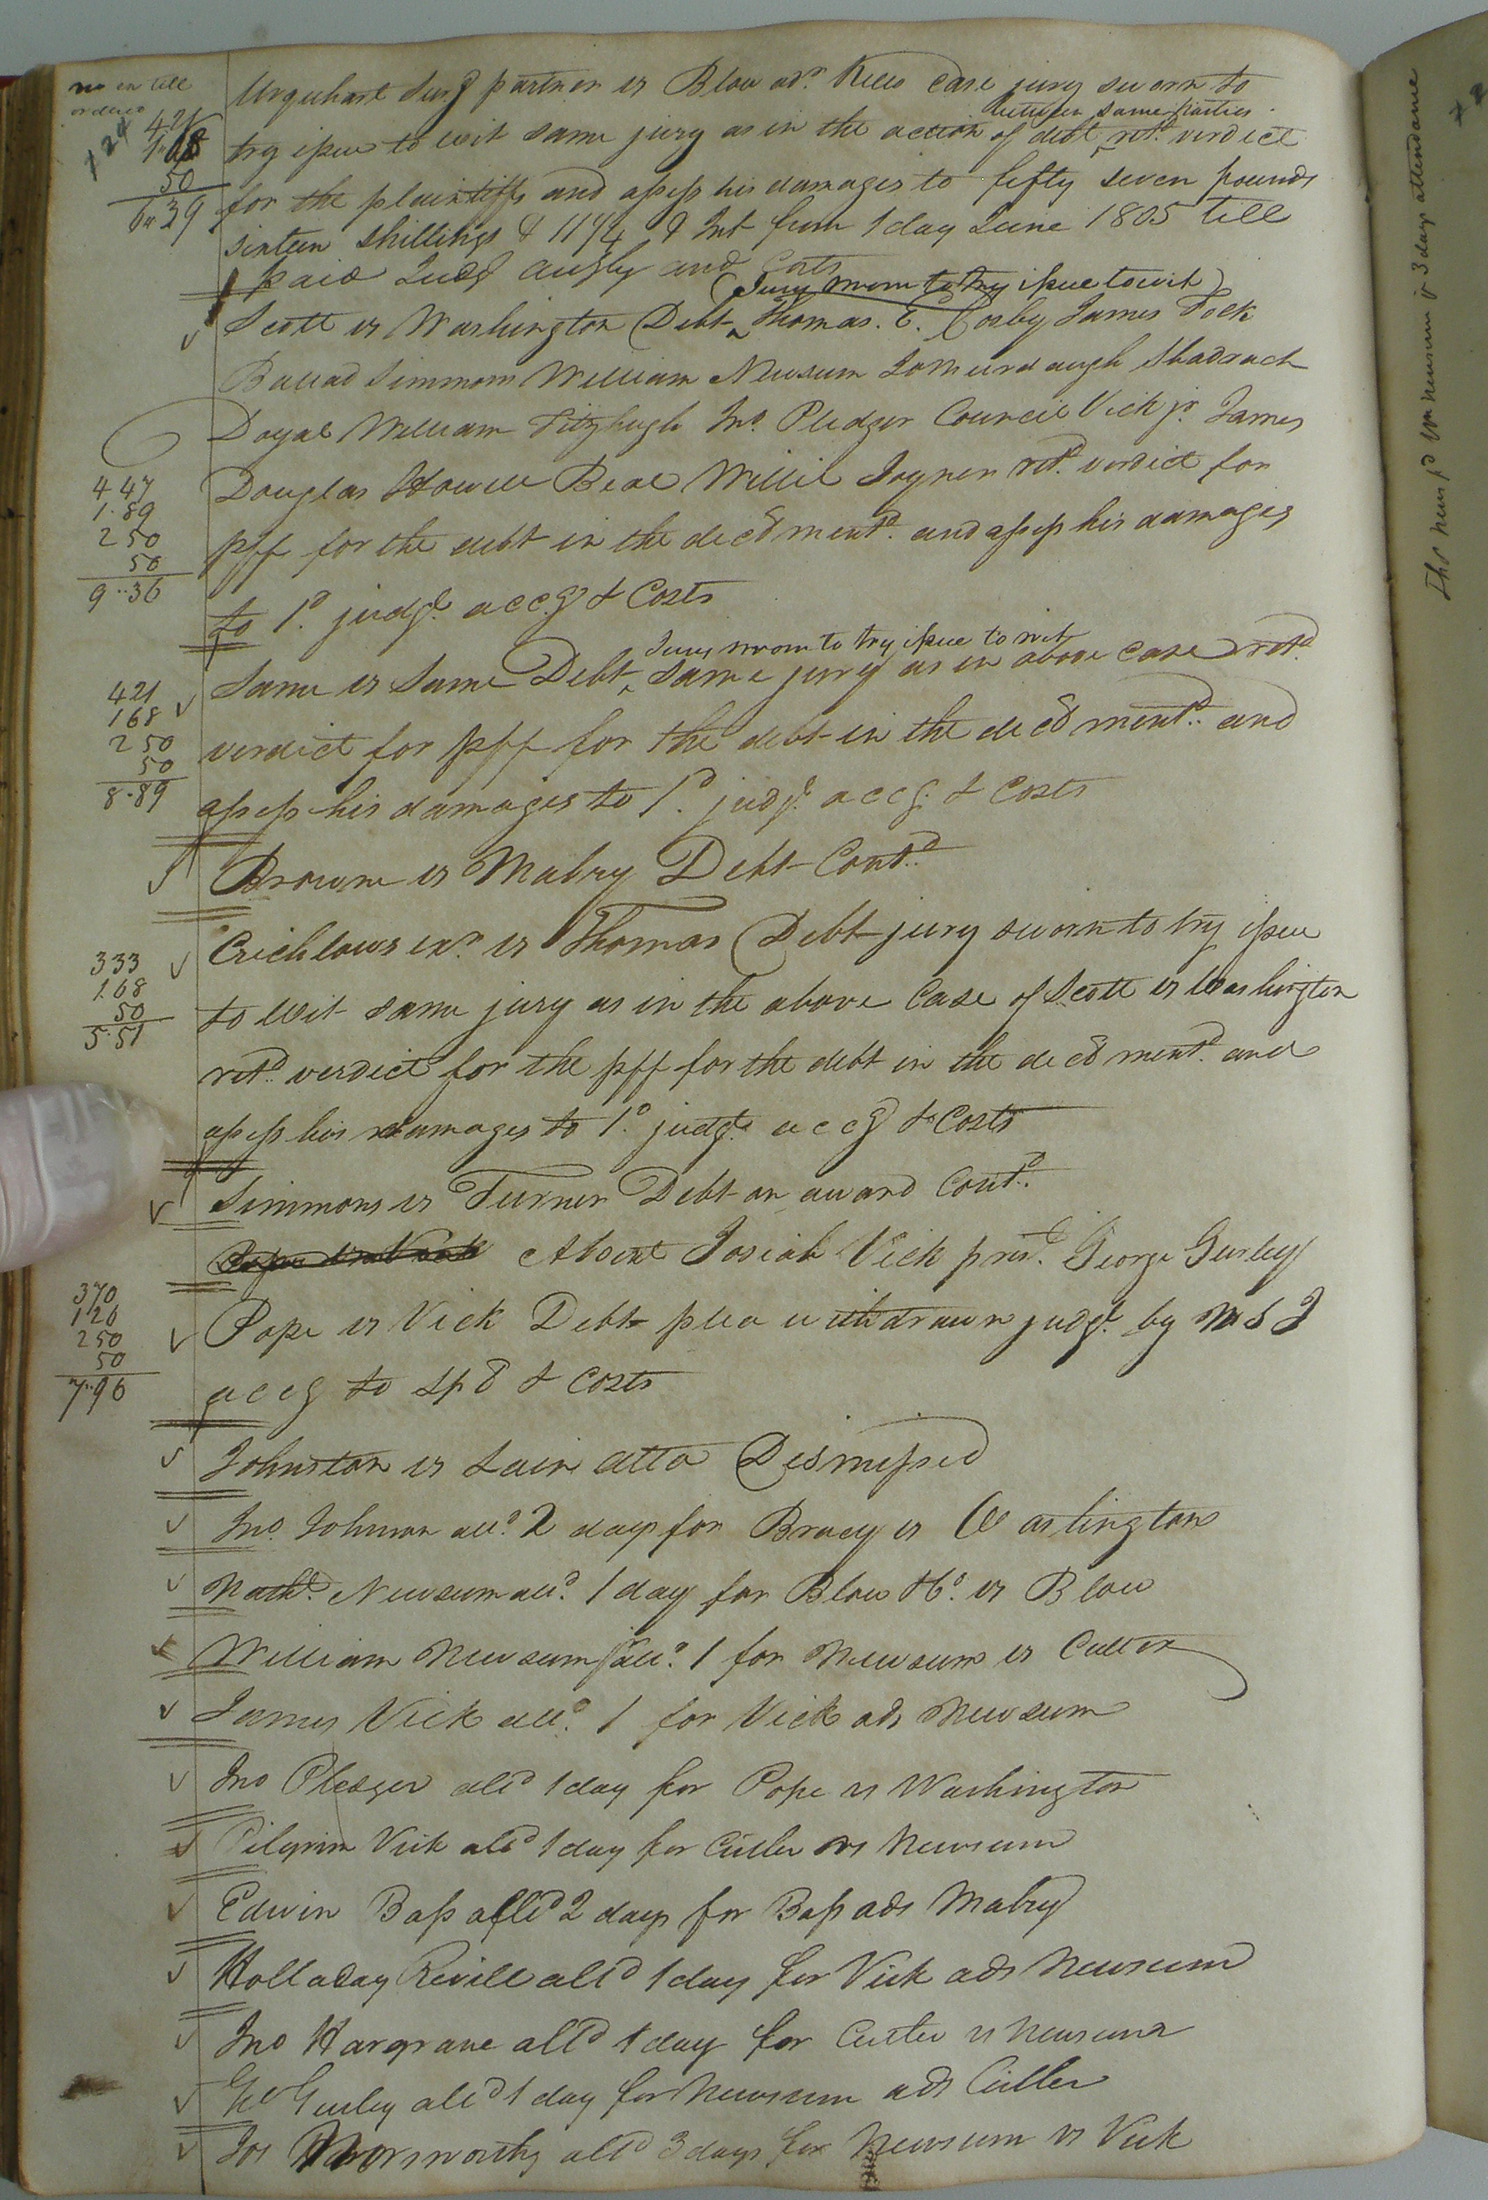 no ex till
ordered
421
1.68
50
6..39
Urquhart Surg partner vs Blow adr. Case jury sworn to
between same parties
try issue to wit same jury as in the action of debt retd. verdict
for the plaintiffs and assess his damages to fifty seven pounds
sixteen shillings & 11 1/4 & Int from 1 day June 1805 till
paid Judg and Costs
Jury sworn to try issue to wit
Scott vs Washington Debt Thomas. E. Cosby James Fock
Simmons William Newsum Shadrach
Doyal William Fitzhugh Jno. Pledger Council Vick jr. James
447
1.89
250
50
9..36
Douglas Howell Beal Joyner retd. verdict for
pff for the debt in the decd mentd. and assess his damages
to 1d. judgt. accg & Costs
Jury sworn to try issue to wit
421
168
250
50
8.89
Same vs Same Debt same jury as in above case retd.
verdict for pff for the debt in the decd mentd. and
assess his damages to 1d. judgt. accg. & Costs
Brown vs Mabry Debt Contd.
333
1.68
50
5.51
Crichlows exr. vs Thomas Debt jury sworn to try issue
to wit same jury as in the above Case of Scott vs Washington
retd. verdict for the pff for the debt in the decd mentd. and
assess his damages to 1d. judgt. accg & Costs
Simmons vs Turner Debt on award Contd.
Absent Josiah Vick prest. George Gurley
370
126
250
50
7..96
Pope vs Vick Debt plea withdrawn judgt. by
accg to spd & Costs
Johnston vs Lain atta Dismissed
Jno. Johnson alld. 2 days for Bracy vs Washington
Nathl. Newsum alld. 1 day for Blow vs Blow
William Newsum jr alld. 1 for Newsum vs Cutler
James Vick alld. 1 for Vick ads Newsum
Jno Pledger alld 1 day for Pope vs Washington
Pilgrim Vick alld 1 day for Cutler vs Newsum
Edwin Bass alld 2 days for Bass ads Mabry
Holladay Revill alld 1 day for Vick ads Newsum
Jno Hargrave alld 1 day for Cutler vs Newsum
Go Gurley alld 1 day for Newsum ads Cutler
Jos Norsworthy alld 3 days for Newsum vs Vick
3 days attendance